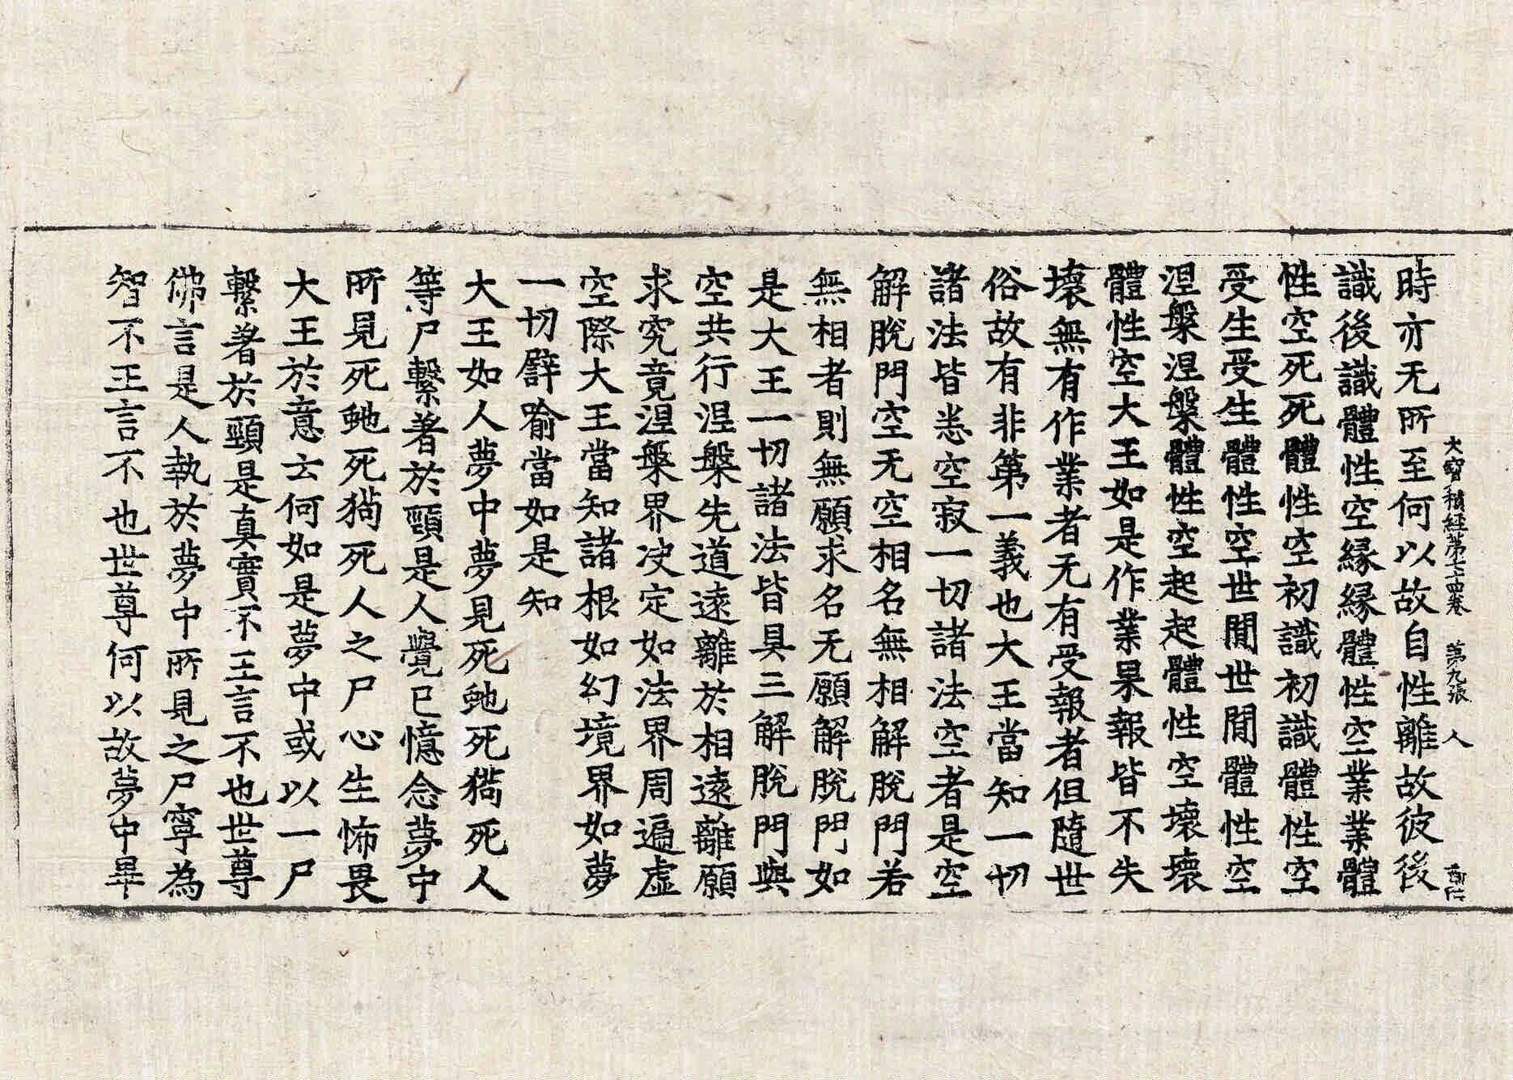 大寶積經第七四卷　第九張　人
時亦无所至何以故自性離故彼後
識後識體性空緣緣體性空業業體
性空死死體性空初識初識體性空
受生受生體性空世閒世閒體性空
涅槃涅槃體性空起起體性空壞壞
體性空大王如是作業果報皆不失
壞無有作業者无有受報者但隨世
俗故有非第一義也大王當知一切
諸法皆悉空寂一切諸法空者是空
解脫門空无空相名無相解脫門若
無相者則無願求名无願解脫門如
是大王一切諸法皆具三解脫門與
空共行涅槃先道遠離於相遠離願
求究竟涅槃界决定如法界周遍虛
空際大王當知諸根如幻境界如夢
一切譬喻當如是知
大王如人夢中夢見死虵死㺃死人
等尸繫著於頸是人覺已憶念夢中
所見死虵死㺃死人之尸心生怖畏
大王於意云何如是夢中或以一尸
繫著於頸是真實不王言不也世尊
佛言是人執於夢中所見之尸寧為
智不王言不也世尊何以故夢中畢